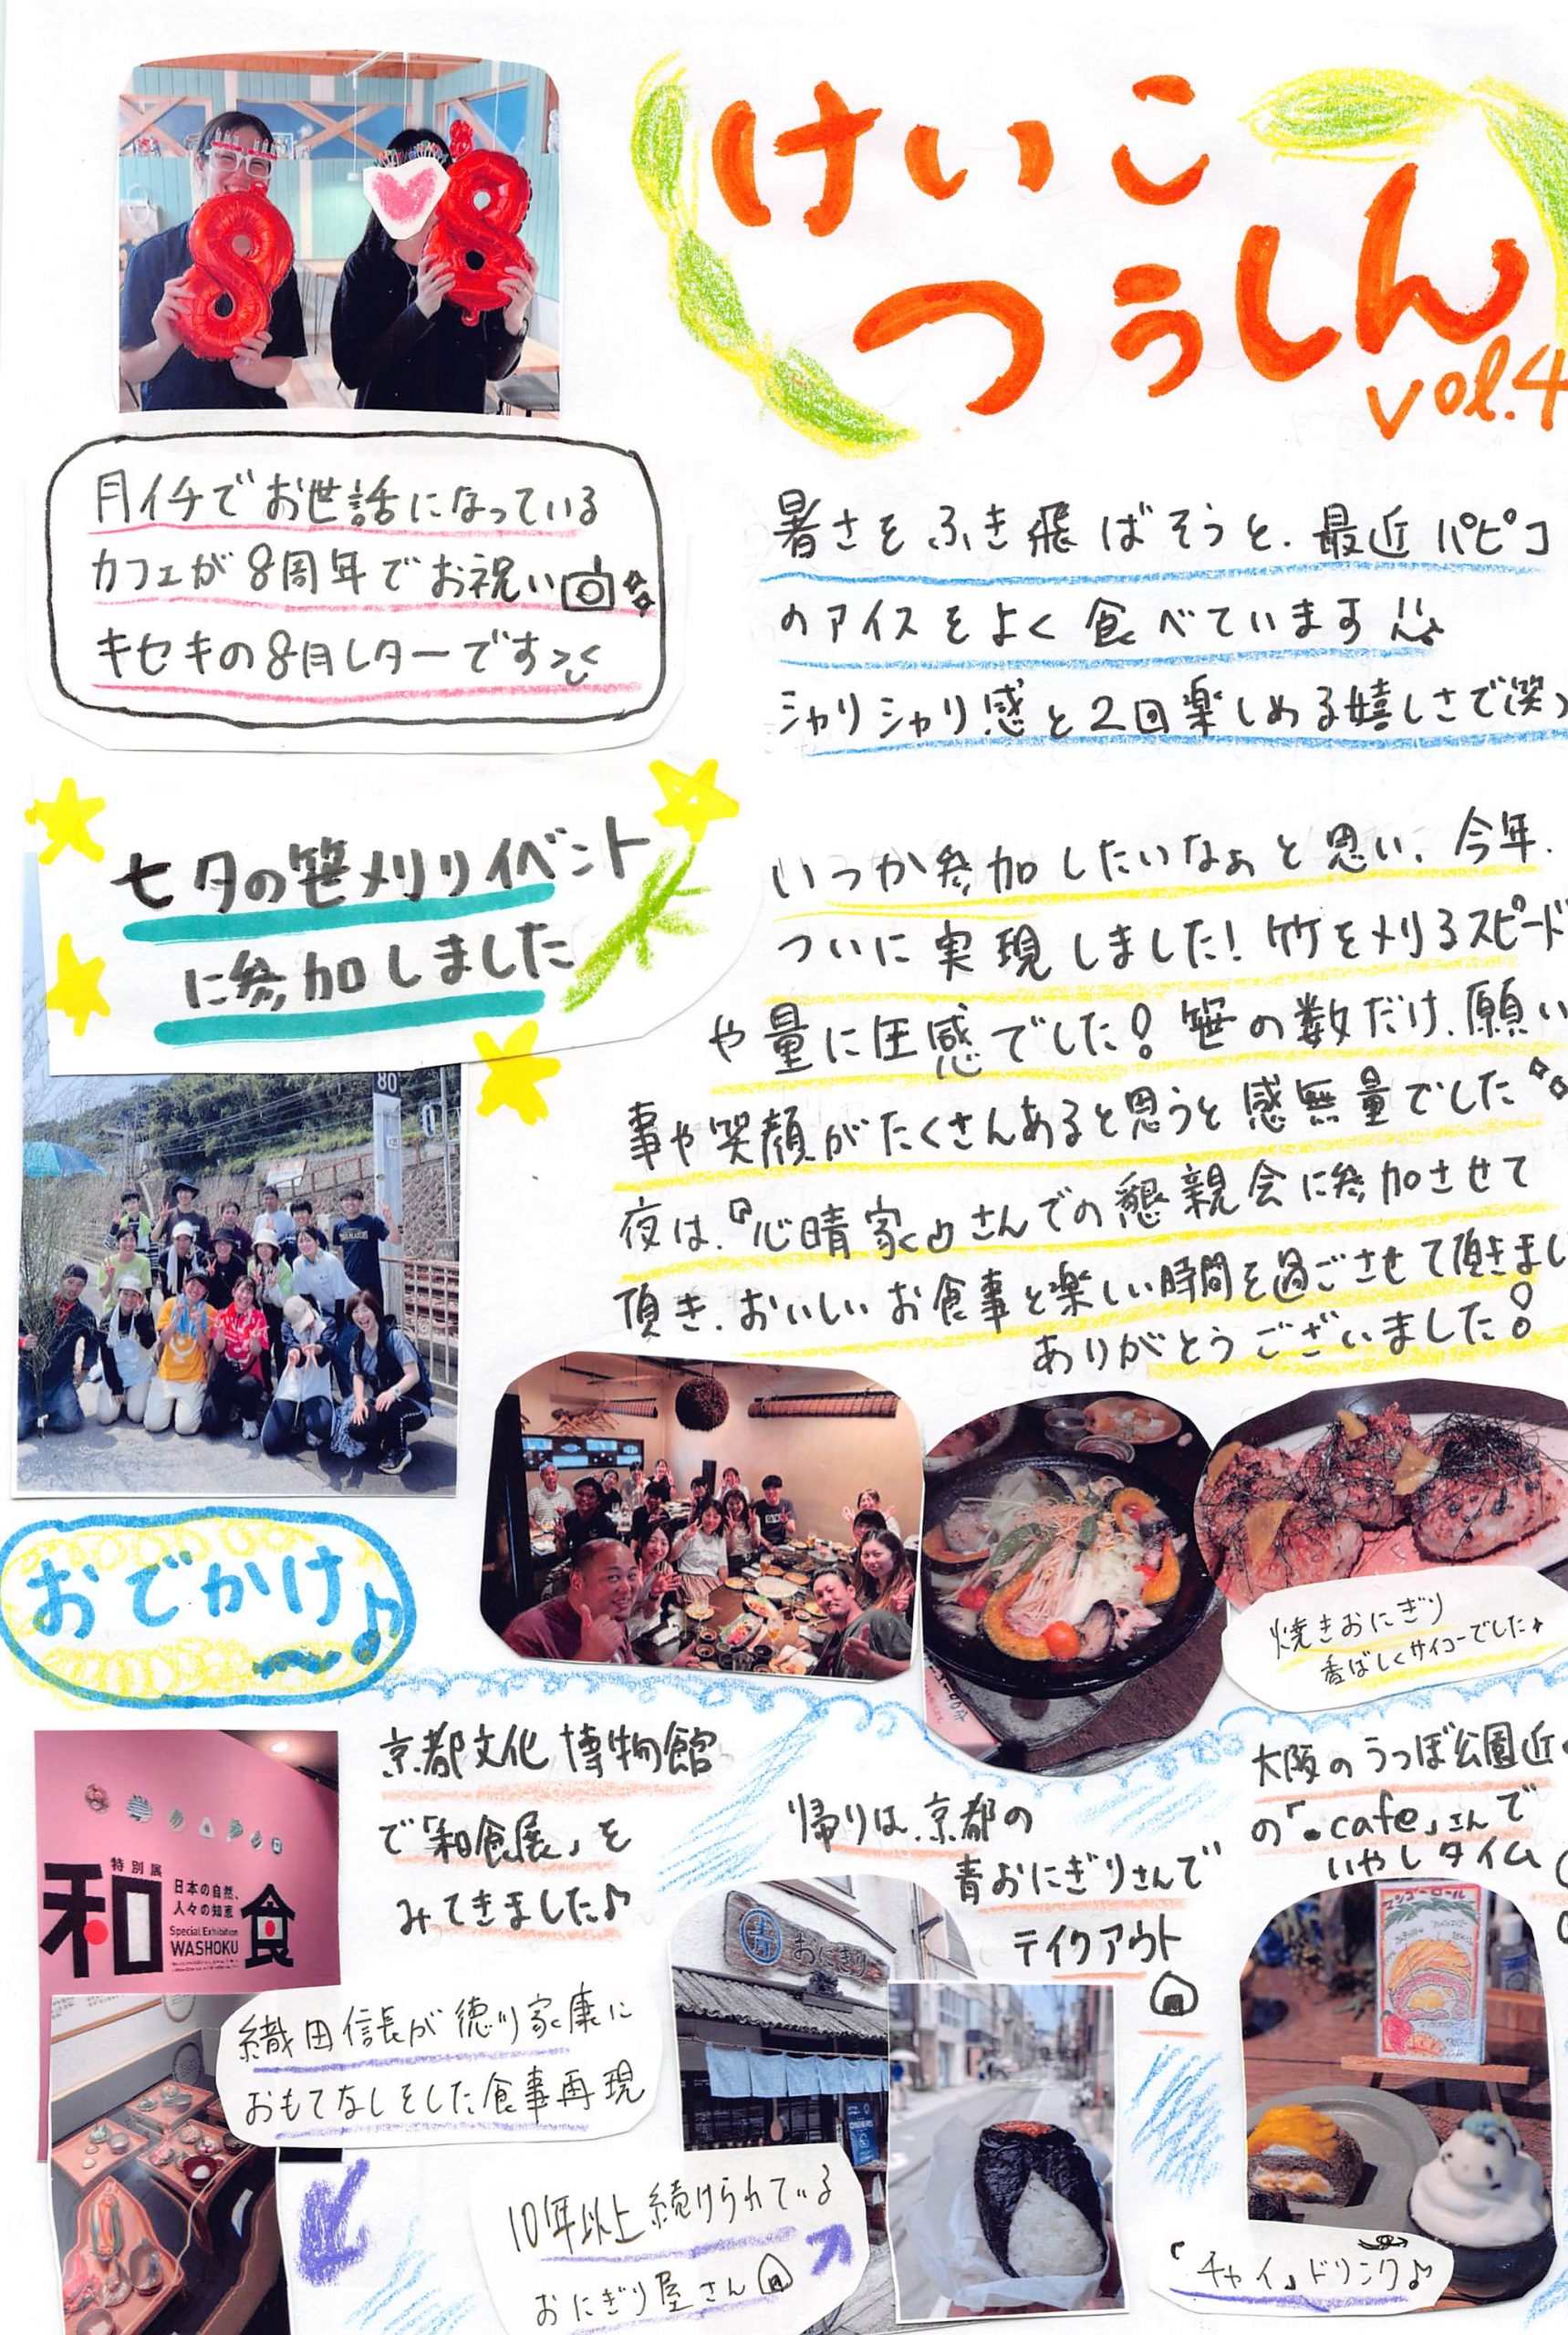 けいこ
つうしん
vol.4
月イチでお世話になっている
カフェが8周年でお祝い
キセキの8月レターです
暑さをふき飛ばそうと、最近パピコ
のアイスをよく食べています!!
シャリシャリ感と2回楽しめる嬉しさで(笑)
七夕の笹刈りイベント
に参加しました
いつか参加したいなぁと思い、今年、
ついに実現しました!竹を刈るスピード
や量に圧感でした!笹の数だけ、願い
事や笑顔がたくさんあると思うと感無量でした
夜は、『心晴家』さんでの懇親会に参加させて
頂き、おいしいお食事と楽しい時間を過ごさせて頂きまし
ありがとうございました!
80
焼きおにぎり
香ばしくサイコーでした♪
おでかけ〜♪
京都文化博物館
で「和食展」を
みてきました♪
特別展
和食
日本の自然、
人々の知恵
Special Exhibition
WASHOKU
織田信長が徳川家康に
おもてなしをした食事再現
帰りは、京都の
青おにぎりさんで
テイクアウト
青おにぎり
10年以上続けられている
おにぎり屋さん
大阪のうつぼ公園近く
の「.cafe」さんで
いやしタイム
マンゴーロール
「チャイ」ドリンク♪